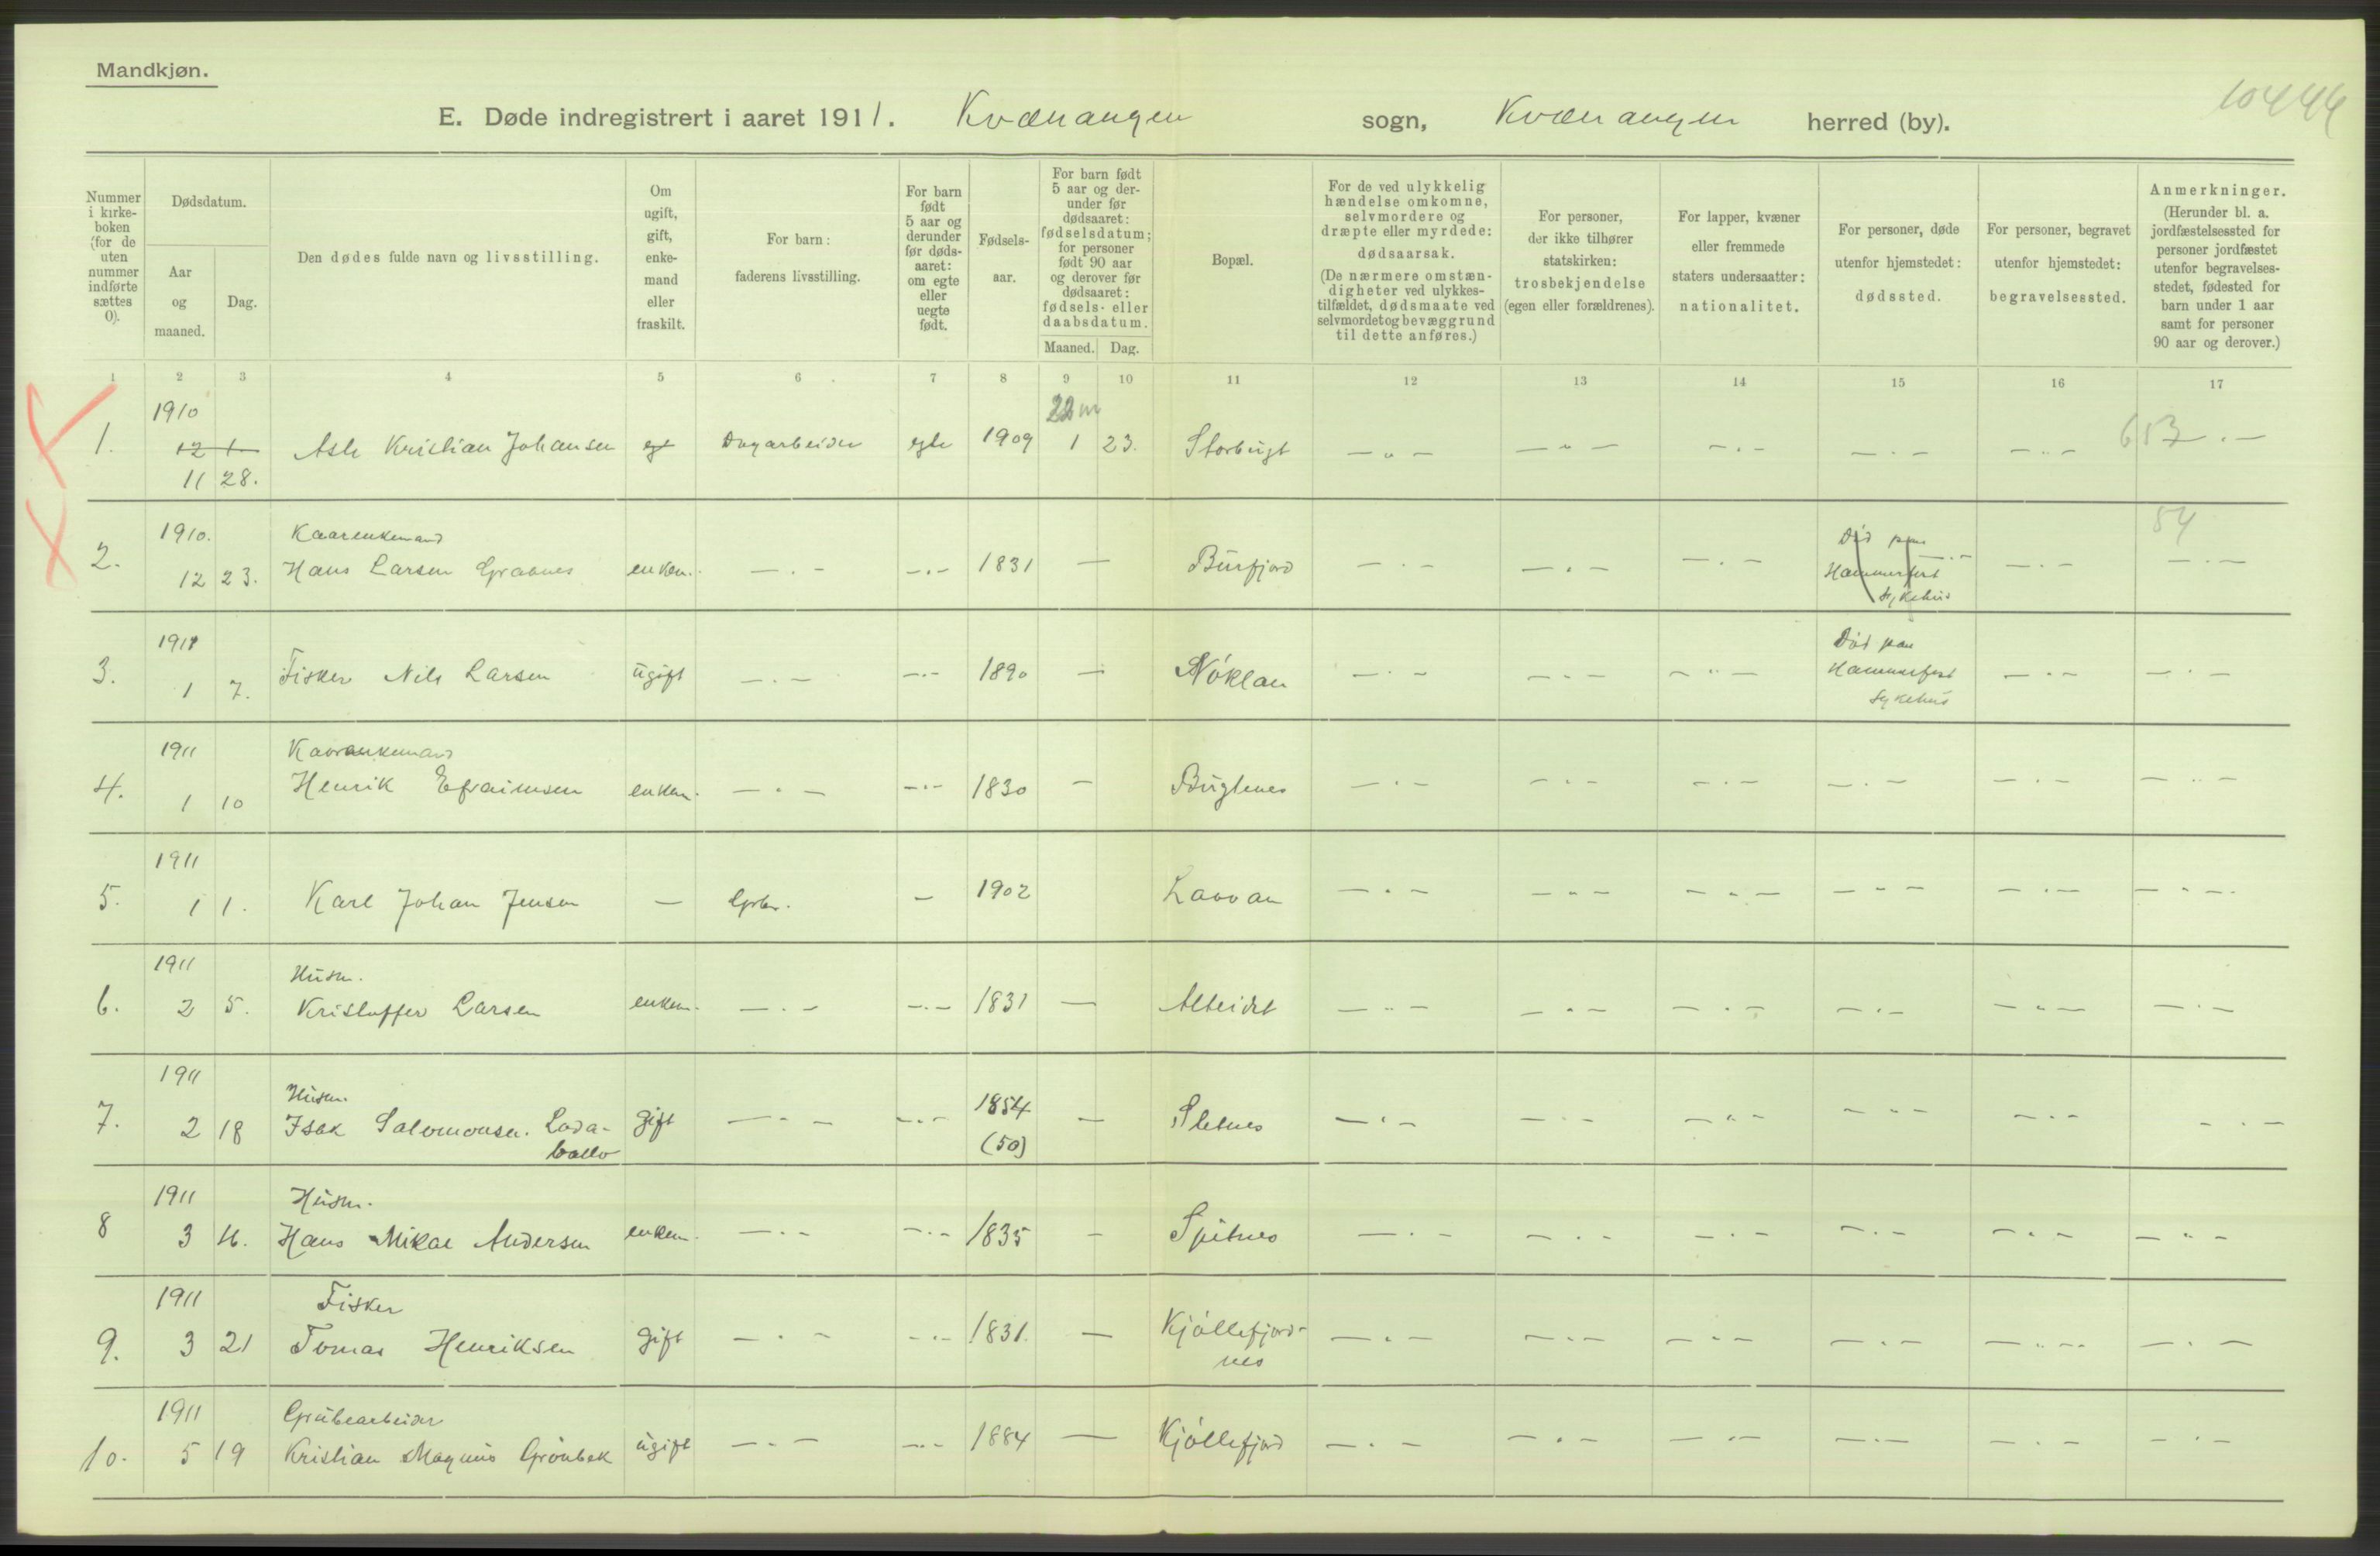 Mandkjøn.
E. Døde indregistrert i aaret 1911. Kvænangen sogn, Kvænangen herred (by).
10446
Nummer i kirkeboken (for de uten nummer indførte sættes 0).
Dødsdatum.
Aar og maaned.
Dag.
Den dødes fulde navn og livsstilling.
Om ugift, gift, enkemand eller fraskilt.
For barn: faderens livsstilling.
For barn født 5 aar og derunder før dødsaaret: om egte eller uegte født.
Fødselsaar.
For barn født 5 aar og derunder før dødsaaret: fødselsdatum; for personer født 90 aar og derover før dødsaaret: fødsels- eller daabsdatum.
Maaned. Dag.
Bopæl.
For de ved ulykkelig hændelse omkomne, selvmordere og dræpte eller myrdede: dødsaarsak. (De nærmere omstændigheter ved ulykkestilfældet, dødsmaate ved selvmordet og bevæggrund til dette anføres.)
For personer, der ikke tilhører statskirken: trosbekjendelse (egen eller forældrenes).
For lapper, kvæner eller fremmede staters undersaatter: nationalitet.
For personer, døde utenfor hjemstedet: dødssted.
For personer, begravet utenfor hjemstedet: begravelsessted.
Anmerkninger. (Herunder bl. a. jordfæstelsessted for personer jordfæstet utenfor begravelsesstedet, fødested for barn under 1 aar samt for personer 90 aar og derover.)
1 2 3 4 5 6 7 8 9 10 11 12 13 14 15 16 17
1910 22 m
1. 12 1 Asle Kristian Johansen Dagarbeider egte 1909 1 23. Storbugt — " — — " — — . — — . — — . — 653 . —
11 28.
1910. Kaarenkemand 54
2. 12 23. Hans Larsen Grasnes enkem. — . — — . — 1831 — Burfjord — . — — . — — . — Död paa Hammerfest Sykehus — . — — . — — . —
1911
3. 1 7. Fisker Nils Larsen ugift — . — — . — 1890 — Nöklan — . — — . — — . — Död paa Hammerfest Sykehus — . — — . —
1911 Kaarenkemand
4. 1 10 Henrik Efraimsen enkem. — . — — . — 1830 — Bugtenes — . — — . — — . — — . — — . — — . —
1911
5. 1 1. Karl Johan Jensen — Gbr. — 1902 Laavan — . — — . — — . — — . — — . — — . —
1911 Husm.
6. 2 5. Kristoffer Larsen enkem. — . — — . — 1831 — Alteidet — . — — . — — . — — . — — . — — . —
1911 Husm.
7. 2 18 Isak Salomonsen. gift — . — — . — 1854 (50) — Sletnes — . — — . — — . — — . — — . — — . —
1911 Husm.
8 3 16. Hans Mikal Andersen enkem. — . — — . — 1835 — Spitnes — . — — . — — . — — . — — . — — . —
1911 Fisker
9. 3 21 Tomas Henriksen gift — . — — . — 1831. — Kjöllefjordnes — . — — . — — . — — . — — . — — . —
1911 Grubearbeider
10. 5 19 Kristian Magnus Grönbek ugift — . — — . — 1884 — Kjöllefjord — . — — . — — . — — . — — . — — . —